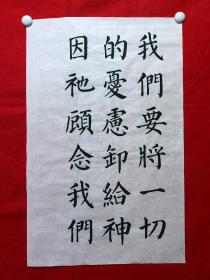 我們要將一切
的憂慮卸給神
因祂顧念我們